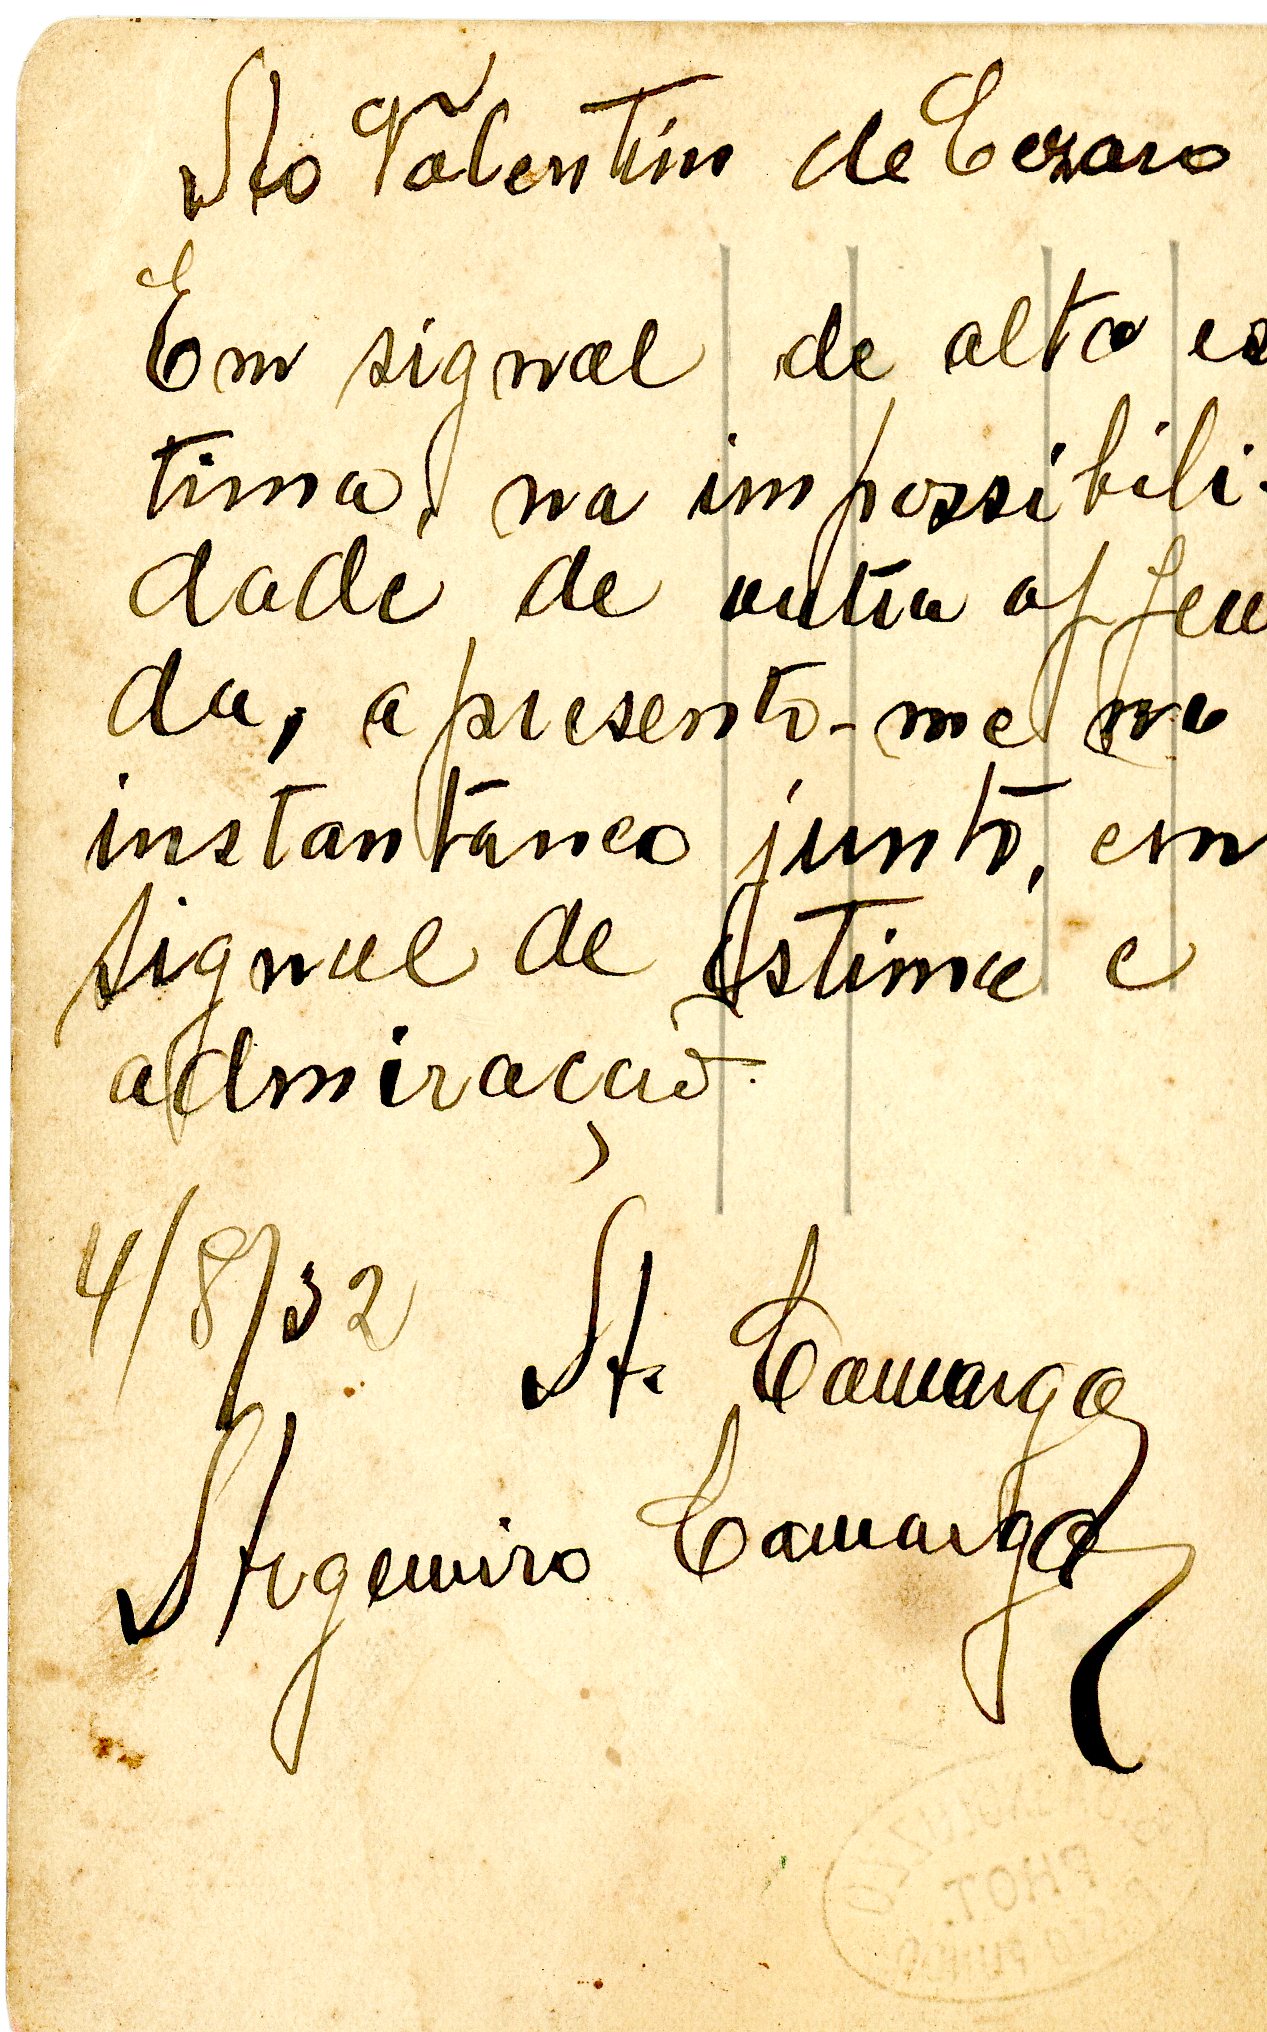 Ao Valentin de Cezaro
Em signal de alta es
tima, na impossibili-
dade de outra
da, apresento-me no
instantaneo junto, em
signal de Estima e
admiração.
4/8/32 A. Camargo
Argemiro Camargo
PHOT.
PASSO FUNDO